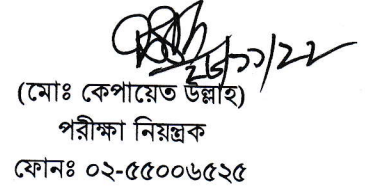 (মোঃ কেপায়েত উল্লাহ)
পরীক্ষা নিয়ন্ত্রক
ফোনঃ ০২-৫৫০০৬৫২৫